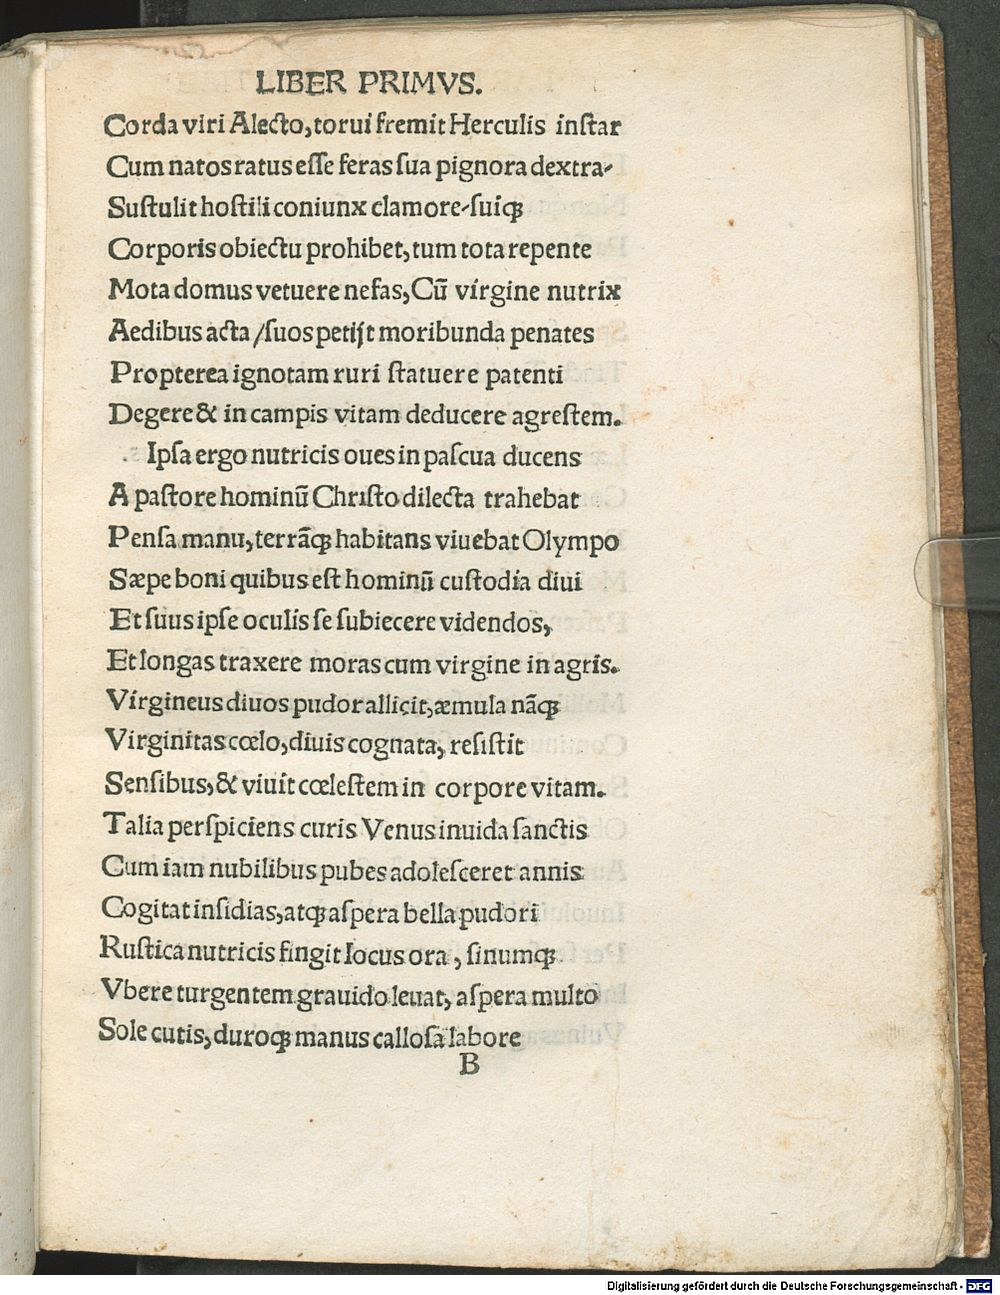 LIBER PRIMVS.
Corda viri Alecto, torui fremit Herculis inſtar
Cum natos ratus eſſe feras ſua pignora dextra⸗
Suſtulit hoſtili coniunx clamore⸗ſuiqꝫ
Corporis obiectu prohibet, tum tota repente
Mota domus vetuere nefas, Cū virgine nutrix
Aedibus acta /ſuos petijt moribunda penates
Propterea ignotam ruri ſtatuere patenti
Degere & in campis vitam deducere agreſtem.
Ipſa ergo nutricis oues in paſcua ducens
A paſtore hominū Chriſto dilecta trahebat
Penſa manu, terrāqꝫ habitans viuebat Olympo
Sæpe boni quibus eſt hominū cuſtodia diui
Et ſuus ipſe oculis ſe ſubiecere videndos,
Et longas traxere moras cum virgine in agris.
Virgineus diuos pudor allicit, æmula nāqꝫ
Virginitas cœlo, diuis cognata, reſiſtit
Senſibus, & viuit cœleſtem in corpore vitam.
Talia perſpiciens curis Venus inuida ſanctis
Cum iam nubilibus pubes adoleſceret annis
Cogitat inſidias, atqꝫ aſpera bella pudori
Ruſtica nutricis fingit Iocus ora, ſinumqꝫ
Vbere turgentem grauido leuat, aſpera multo
Sole cutis, duroqꝫ manus calloſa labore
B
Digitalisierung gefördert durch die Deutsche Forschungsgemeinschaft - DFG